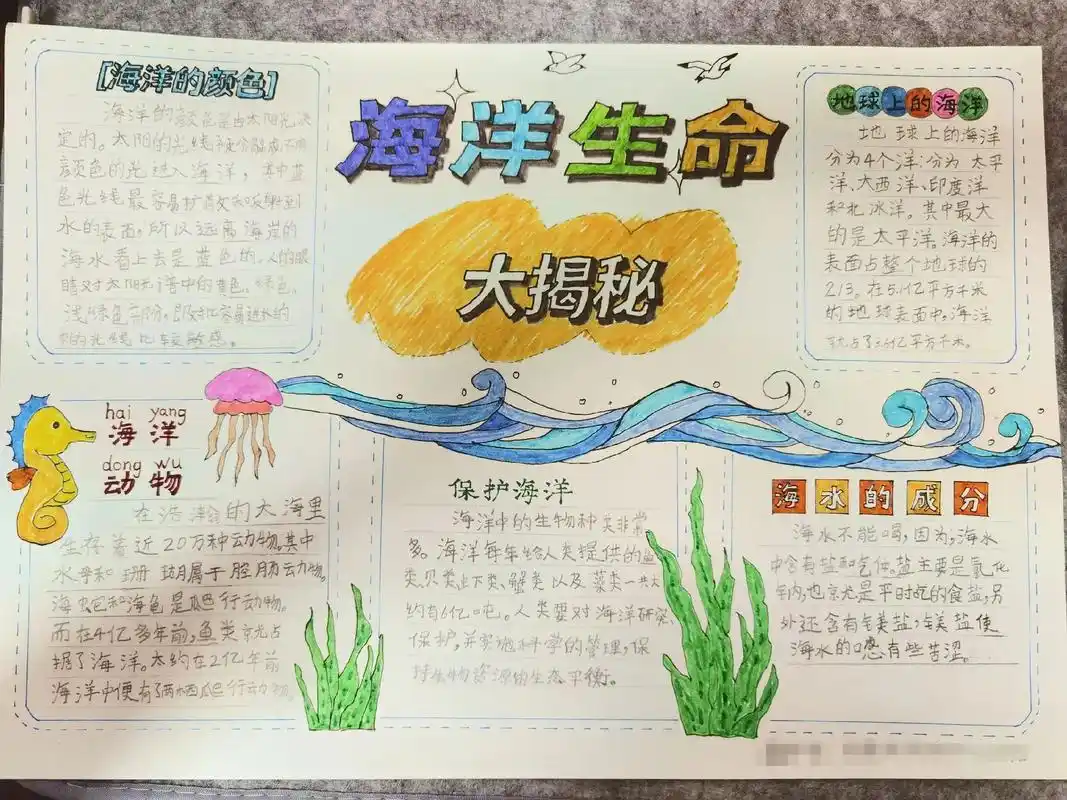 海洋生命
大揭秘
[海洋的颜色]
海洋的颜色是由太阳光决
定的。太阳的光线被分散成不同
颜色的光进入海洋，其中蓝
色光线最容易扩散和吸到
水的表面，所以远离海岸的
海水看上去是蓝色的。人的眼
睛对太阳光谱中的黄色、绿色、
浅绿色部分，即容易进水的
光线比较敏感。
地球上的海洋
地球上的海洋
分为4个洋:分为太平
洋、大西洋、印度洋
和北冰洋。其中最大
的是太平洋,海洋的
表面占整个地球的
2/3。在5.1亿平方千米
的地球表面中,海洋
就占了3.6亿平方千米。
hai yang
海洋
dong wu
动物
在浩瀚的大海里
生存着近20万种动物。其中
水母和珊瑚属于腔肠动物。
海蛇和海龟是爬行动物。
而在4亿多年前,鱼类就占
据了海洋。大约在2亿年前
海洋中便有了两栖爬行动物。
保护海洋
海洋中的生物种类非常
多。海洋每年给人类提供的鱼
类、贝类、虾类、蟹类以及藻类一共大
约有6亿吨。人类要对海洋研究、
保护,并实施科学的管理,保
持生物资源的生态平衡。
海水的成分
海水不能喝,因为,海水
中含有盐和气体。盐主要是氯化
钠,也就是平时吃的食盐,另
外还含有镁盐,镁盐使
海水的感有些苦涩。